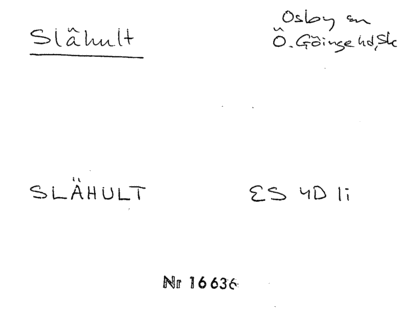 Slähult
Osby sn
Ö. Göinge hd, Sk
SLÄHULT
ES 4D 1i
Nr 16636